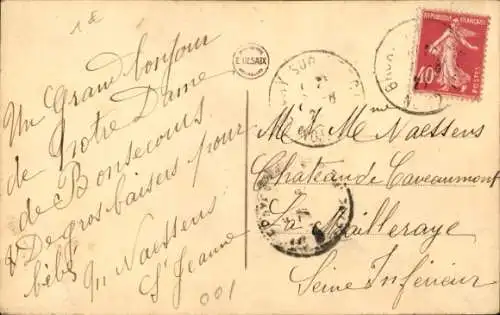 1 E
Un Grand bonjour
de Notre Dame
de Bonsecours
& De gros baisers pour
bébé
Naessens
Jeanne
001
E. DESAIX
RÉPUBLIQUE FRANÇAISE
40c
POSTES
Mr & Mme Naessens
Chateau de Caveaumont
La Mailleraye
Seine Inférieur